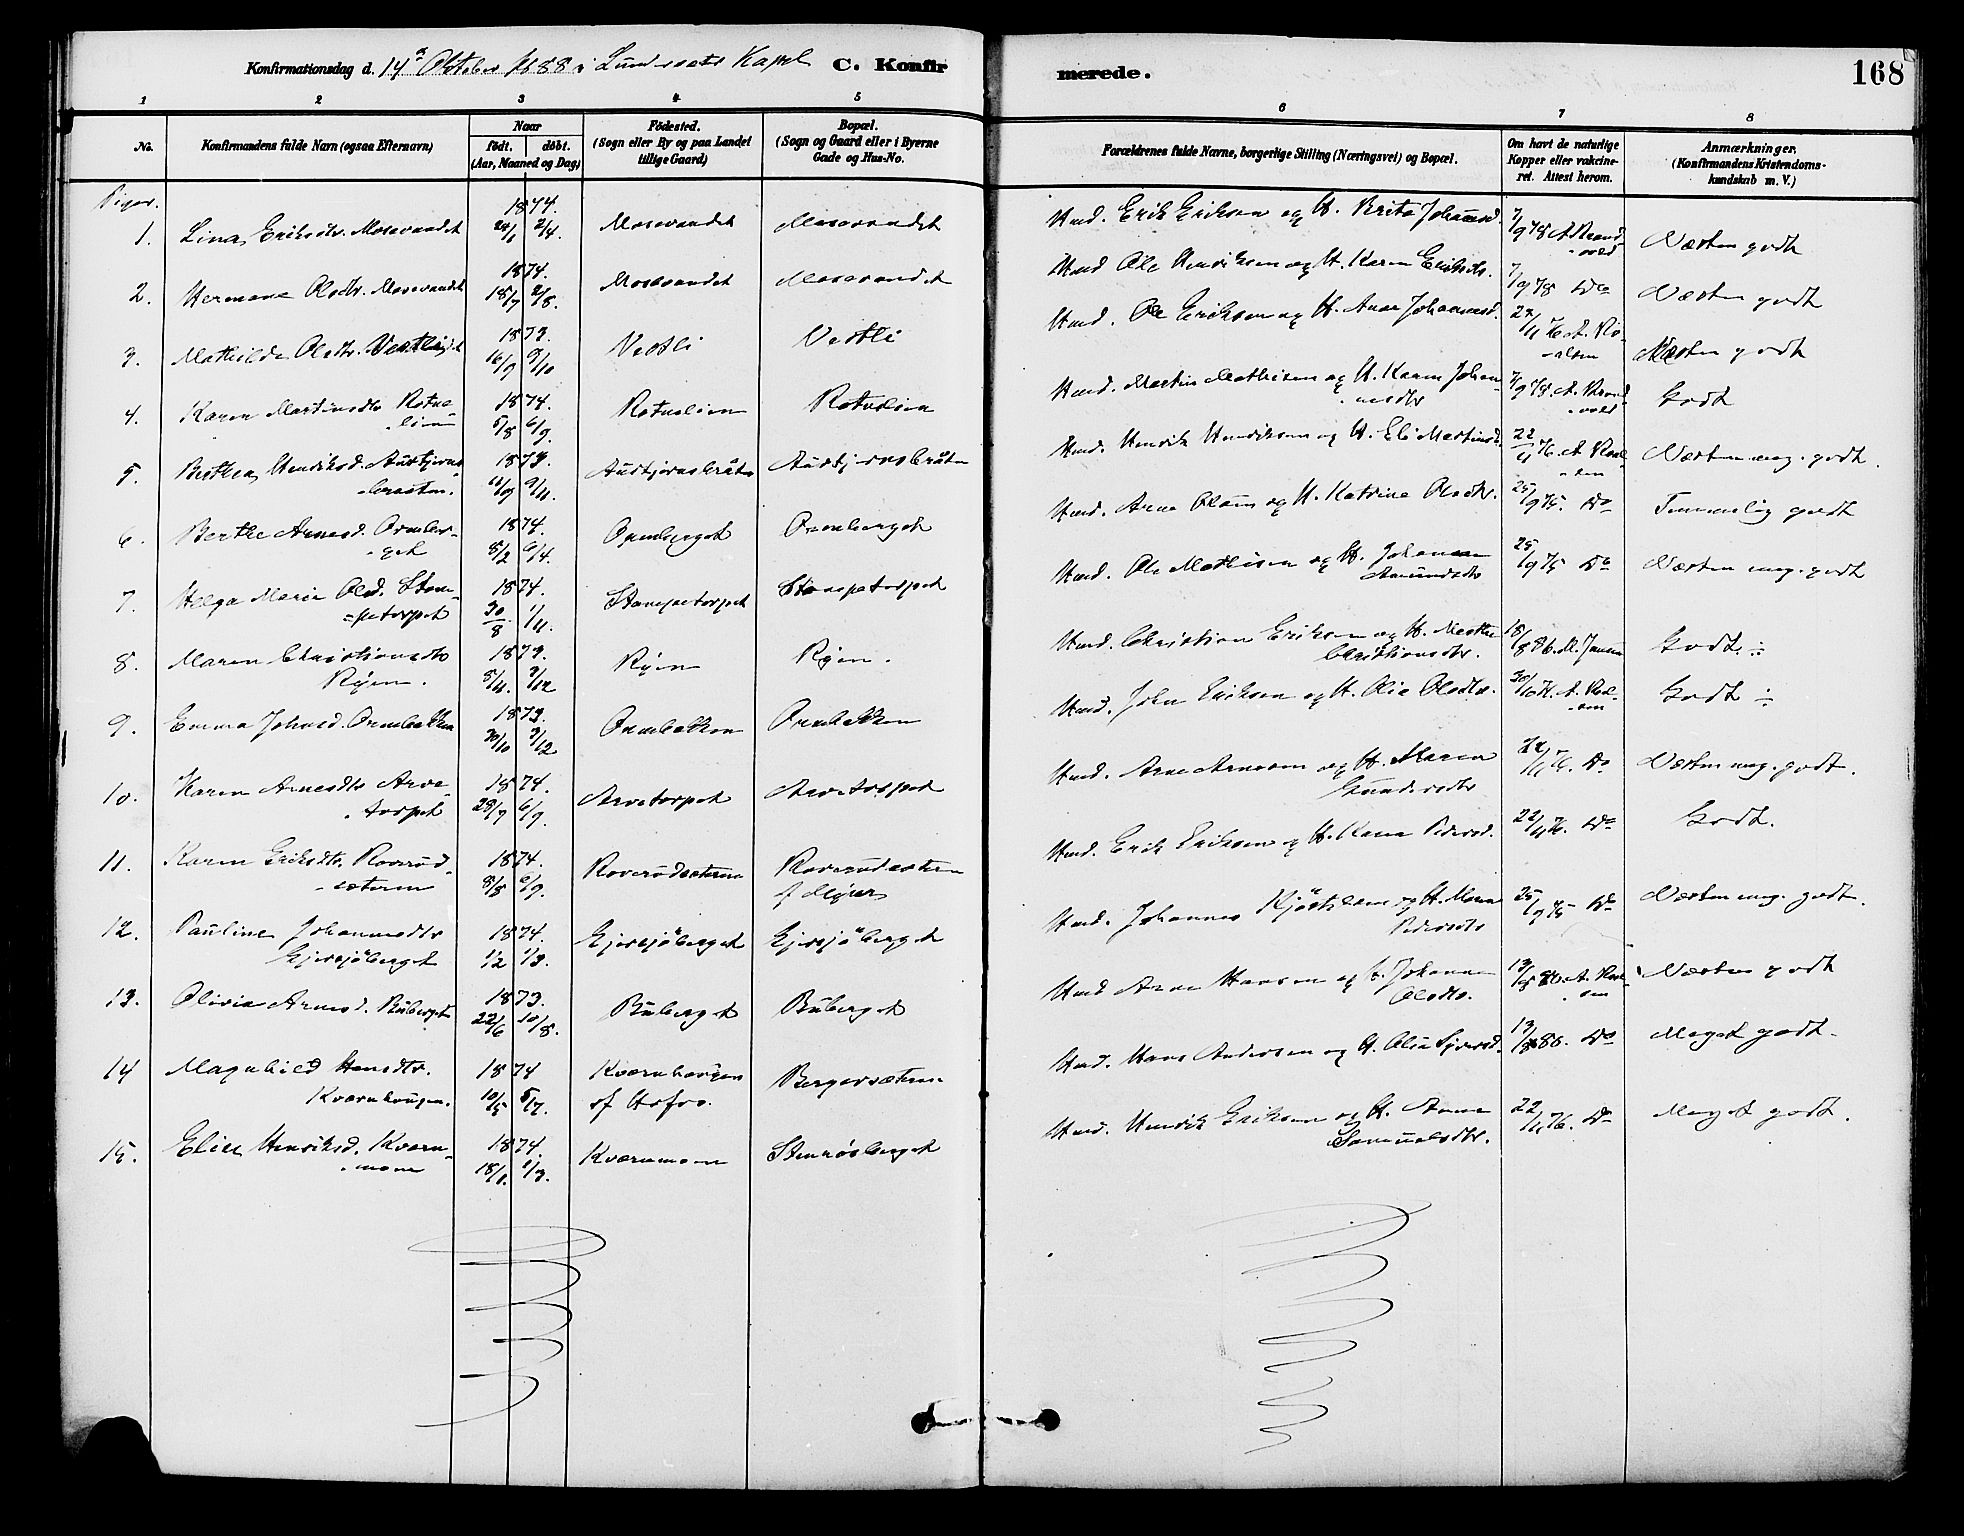 Konfirmationsdag d. 14de Oktober 1888 i Lundersæter Kapel C. Konfir
merede. 168
1 2 3 4 5 6 7 8
No.
Konfirmandens fulde Navn (ogsaa Efternavn)
Naar
født. døbt.
(Aar, Maaned og Dag)
Födested.
(Sogn eller By og paa Landet
tillige Gaard)
Bopæl.
(Sogn og Gaard eller i Byerne
Gade og Hus-No.
Forældrenes fulde Navne, borgerlige Stilling (Næringsvei) og Bopæl.
Om havt de naturlige
Kopper eller vakcine-
ret. Attest herom.
Anmærkninger.
(Konfirmandens Kristendoms-
kundskab m. V.)
Piger.
1. Lina Eriksdtr. Mosevandet 1874. 2/4. Mosevandet Mosevandet Hmd. Erik Eriksen og H. Brita Johannesd. 7/9 78 A Strand-
vold Næsten godt
2. Hermana Olsdtr. Mosevandet 1874. 18/7 2/8. Mosevandet Mosevandet Hmd Ole Henriksen og H. Karen Eriksdtr. 7/9 78 Do Næsten godt
3. Mathilde Olsdtr. Vestli 1873. 16/9 9/10 Vestli Vestli Hmd. Ole Eriksen og H. Anne Johannesd. 22/11 76 A. Næsten godt
4. Karen Martinsdtr Rotne-
lien 1874. 5/8 6/9. Rotnelien Rotnelien Hmd. Martin Mathisen og H. Karen Johan-
nesdtr 7/9 78. A. Strand-
vold Godt
5. Berthea Henriksd. Austjerns-
braaten. 1873. 9/11. Austjernsbråten Austjernsbråten Hmd. Henrik Henriksen og H. Eli Martinsd. 22/11 76. A Næsten meg. godt.
6. Berthe Arnesd. Ormber-
get 1874. 8/2 6/4. Ormberget Ormberget Hmd. Arne Olsen og H. Katrine Olsdtr. 25/9 75. Do Temmelig godt
7. Helga Marie Olsd. Stom-
petorpet 1874. 30/8 1/11. Stompetorpet Stompetorpet Hmd. Ole Mathisen og H. Johanne
Amundsdtr 25/9 75 Do Næsten meg. godt
8. Maren Christiansdtr
Ryen. 1873. 5/11. 3/12 Ryen Ryen. Hmd. Christian Eriksen og H. Marthe
Christiansdtr. 18/8 86. M. Jensen Godt ÷
9. Emma Johnsd. Ormbakken 1873. 30/10 3/12 Ormbakken Ormbakken Hmd. John Eriksen og H. Olia Olsdtr. 30/10 76. A. Godt ÷
10. Karen Arnesdtr Arve-
torpet 1874. 28/7 6/9. Arvetorpet Arvetorpet Hmd. Arne Arnesen og H. Maren
Gundersdtr 22/11 76. Do Næsten meg. godt.
11. Karen Eriksdtr. Roverud-
sæteren 1874. 8/8 6/9. Roverudsæteren Roverudsæteren
af Myrer Hmd. Erik Eriksen og H. Karen Pedersd. 22/11 76. Do Godt.
12. Pauline Johannesdtr
Gjersjöberget 1874. 1/2 1/3. Gjersjöberget Gjersjöberget Hmd. Johannes og H. Maren
Pedersdtr 25/9 75 Do Næsten meg. godt.
13. Olivia Arnesd. Buberget 1873. 22/6 10/8. Buberget Buberget Hmd Arne Hansen og H. Johanne
Olsdtr. 13/8 86. A. Næsten godt
14 Magnhild Hansdtr.
Kværnhaugen. 1874 10/5 5/7. Kværnhaugen
af Hofvo. Bergersæteren Hmd. Hans Andersen og H. Olea Syversd. 13/8 86. Do Meget godt
15. Elise Henriksd. Kværn-
moen 1874. 18/1. 1/3. Kværnmoen Stenrösberget Hmd. Henrik Eriksen og H. Anne
Samuelsdtr. 22/11 76. Do Meget godt.